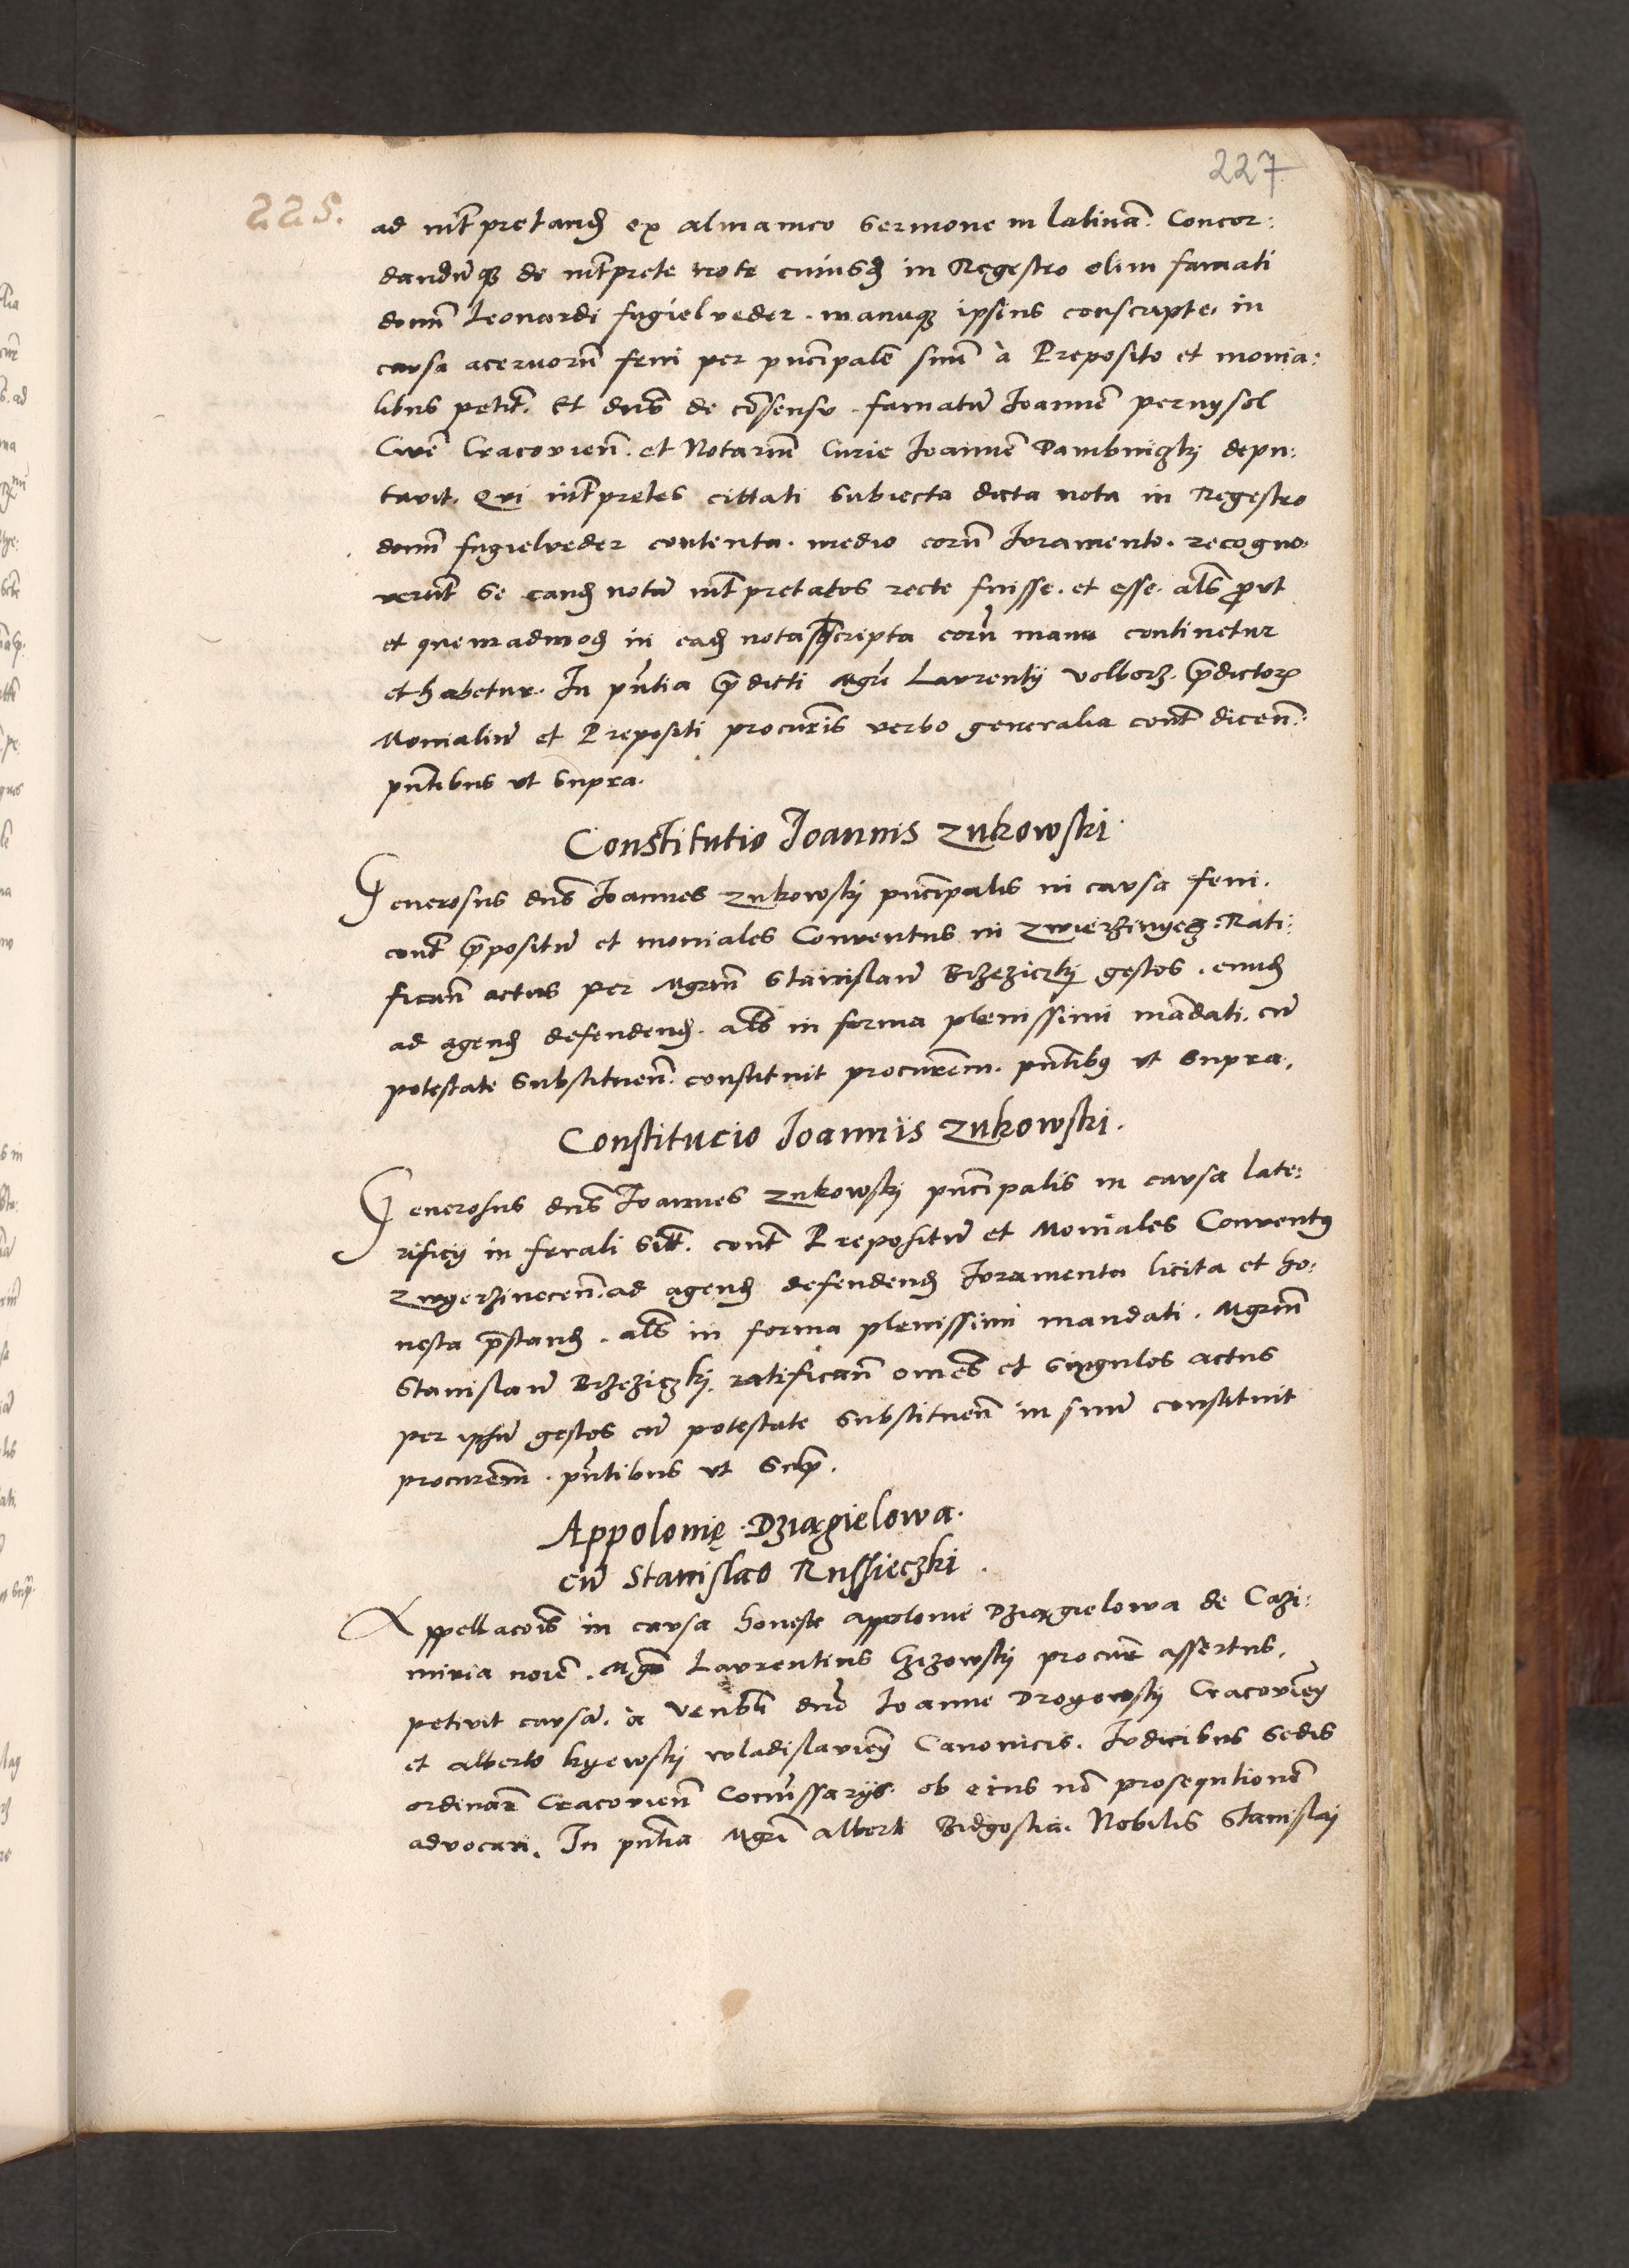 227
225.
ad int̃pretand̃ ex almanico sermone in latinã. Concor:
dandũq̃ de int̃prete note cuiusd̃ in Regestro olim famati
domñ Leonardi fugielveder. manuq̃ ipsius conscripte, in
causa aceruorũ feni per pncĩpalẽ suũ à Preposito et monia:
libus petit̃. Et dñs de cõsensu famatũ Joannẽ pernysol
Civẽ Cracovieñ. et Notariũ Curie Joannẽ Dambniczkj depu:
tavit. Qui int̃pretes cittati subiecta dicta nota in Regestro
domñ fugielveder contenta. medio eorũ Juramento. recogno:
verũt se eand̃ notã int̃pretatos recte fuisse. et esse. als p̃ut
et quemadmod̃ in ead̃ nota scripta eorũ manu continetur
et habetur. In pñtia p̃dicti mg̃ri Laurentij volborz. p̃dictorũ
Monialiũ et Prepositi procur̃is verbo generalia cont̃ diceñ.
pñtibus ut supra.
Constitutio Joannis Zukowski
Generosus dñs Joannes Zukowskj pncĩpalis in causa feni.
cont̃ p̃positũ et moniales Conventus in Zwierzinyecz. Rati:
ficañ actus per Mgr̃m Stanislaũ Brzeziczkj gestos. eund̃
ad agend̃ defendend̃. als in forma plenissimi mãdati. cũ
potestate substitueñ. constituit procur̃em. pñtibꝰ ut supra.
Constitucio Joannis Zukowski.
Generosus dñs Joannes Zukowskj pncĩpalis in causa late:
rificij in ferali sit̃. cont̃ Prepositũ et Moniales Conventꝰ
Zwyerzineceñ. ad agend̃ defendend̃ Juramenta licita et ho:
nesta p̃stand̃. als in forma plenissimi mandati. Mgr̃m
Stanislaũ Brzeziczkj. ratificañ omẽs et singulos actus
per ipsũ gestos cũ potestate substitueñ in suũ constituit
procur̃em. pñtibus ut sup̃.
Appolonię Dziągielowa.
cũ Stanislao Russieczki.
Appellacõis in causa honeste appolonie Dziągielowa de Cazi:
miria noiẽ. Mgr̃ Laurentius Gzizowskj procur̃ assertus,
petivit causã. à Venbĩl dño Joanne Drogowskj Cracovieñ
et alberto kyewskj wladislavieñ Canonicis. Judicibus sedis
ordinar̃ Cracovieñ Com̃issarijs. ob eius nõ prosequtionẽ
advocari. In pñtia Mgr̃i alberti Bidgostia. Nobilis Stanislaj